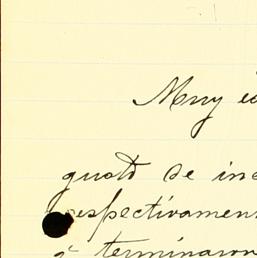 Muy
gusto de
respectivamen
á terminaron